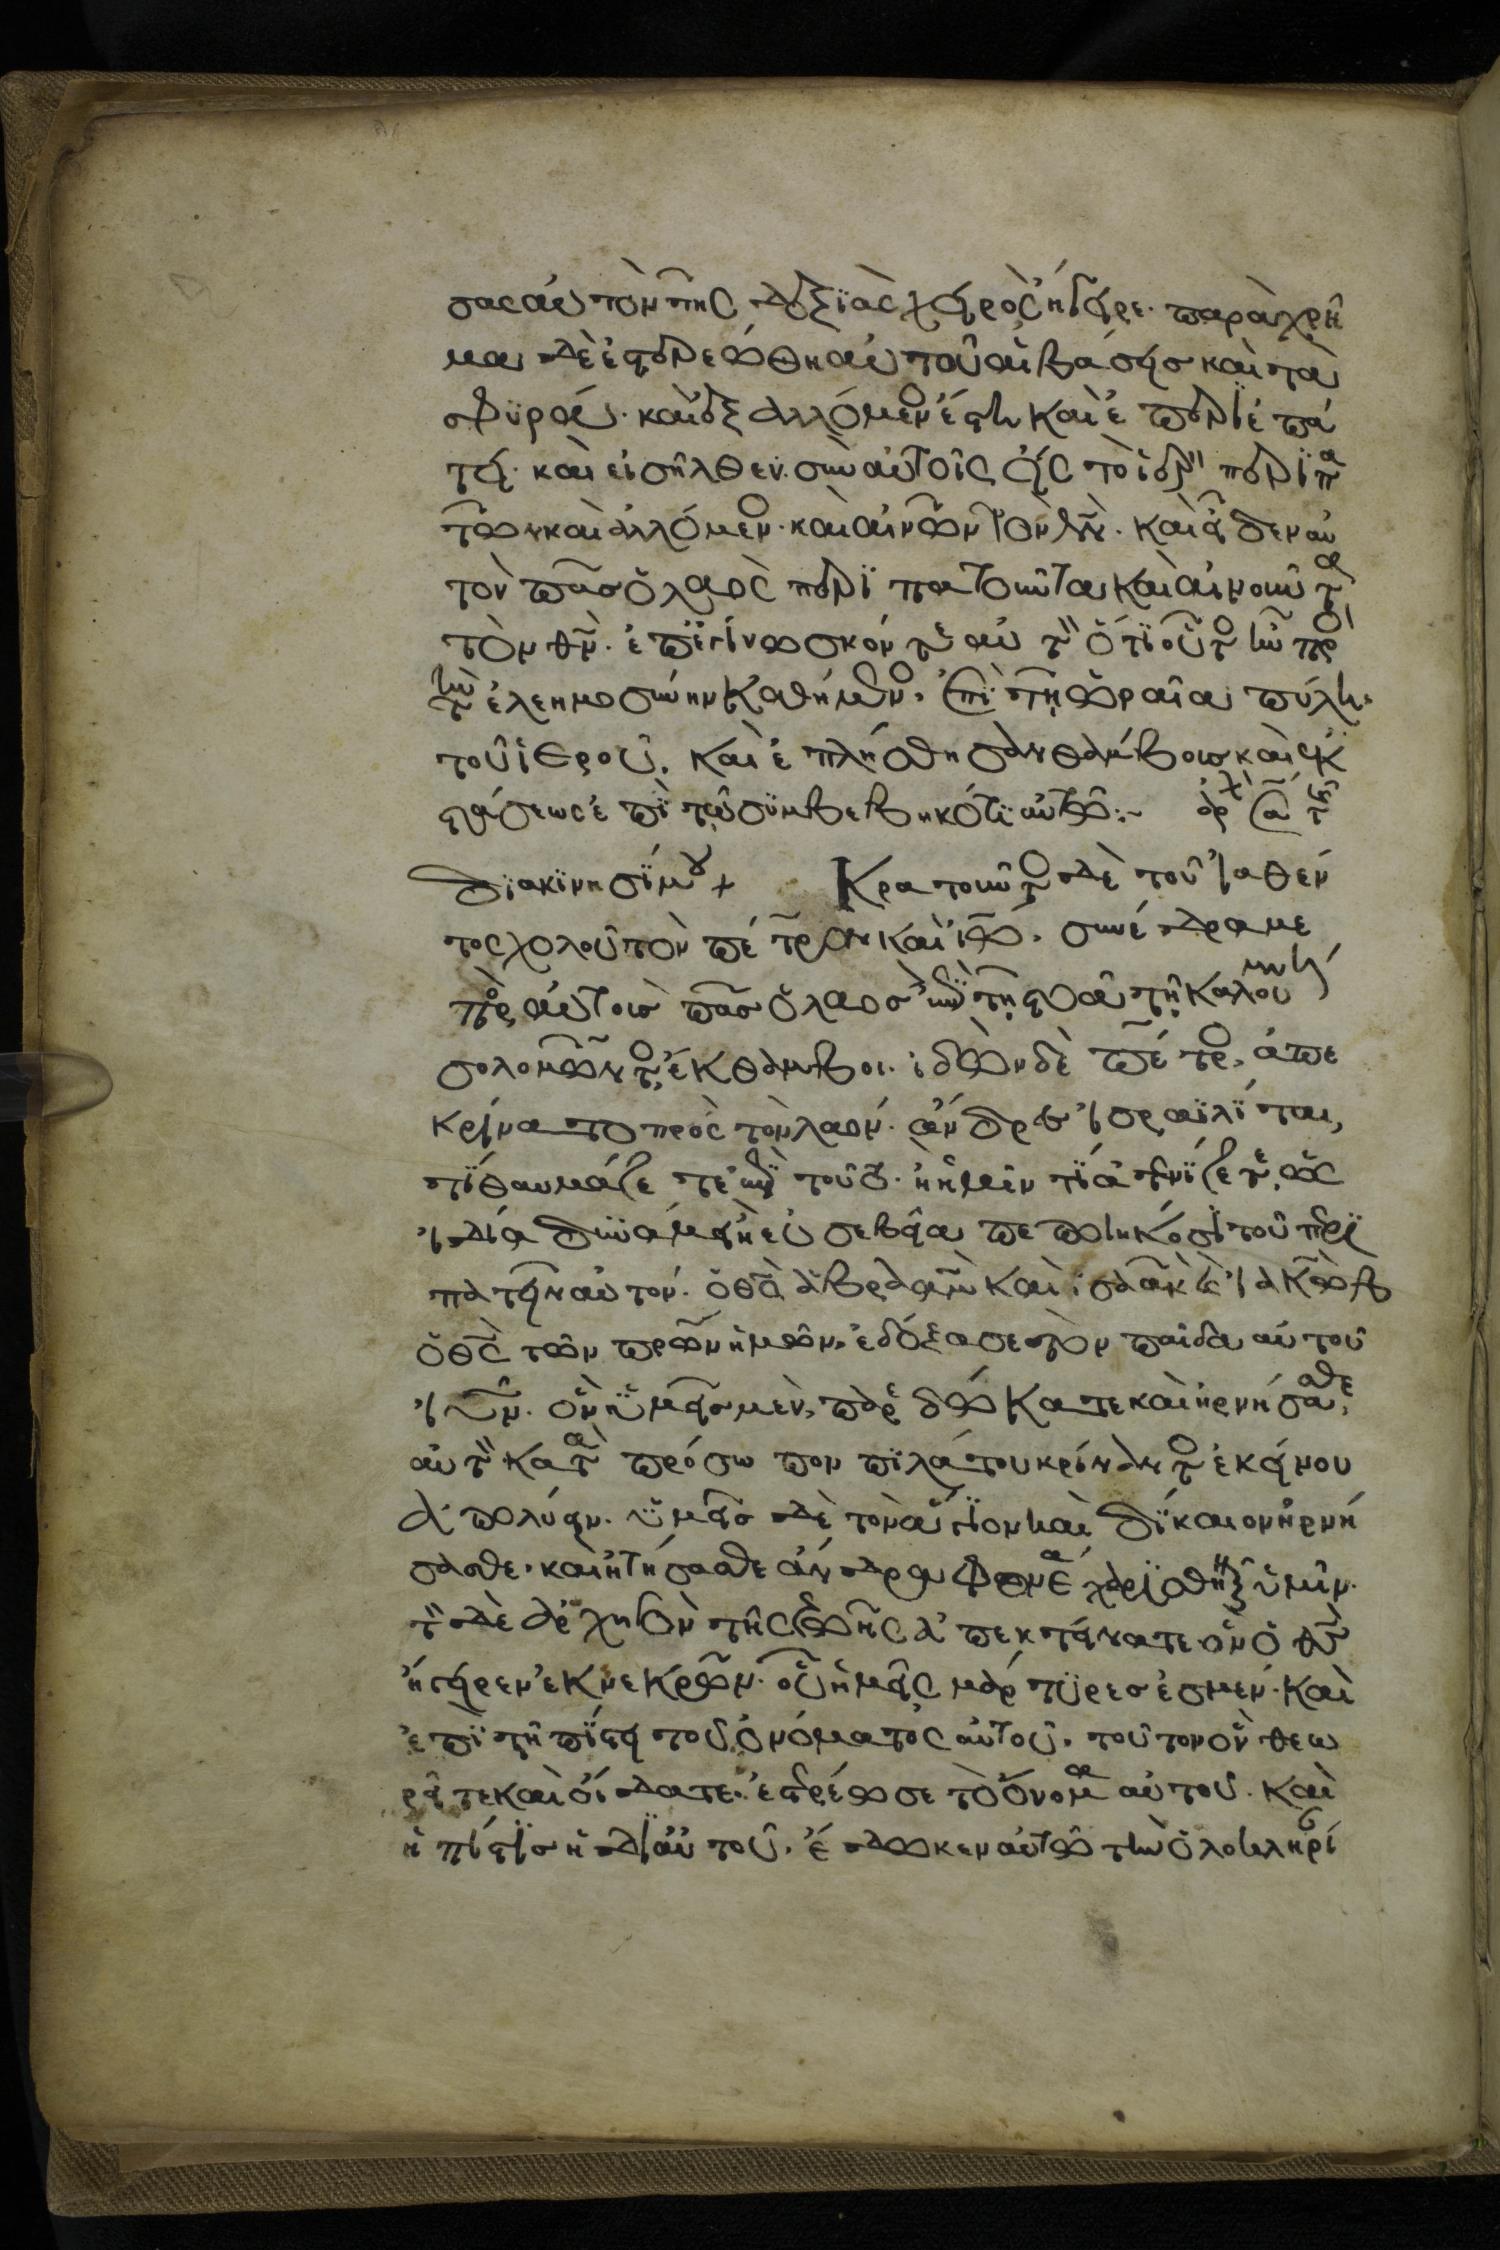 σας αὐτὸν τῆς δεξϊὰς χειρὸς ἤγειρε· παραχρῆ
μα δὲ ἐστερεώθη αὐτοῦ αἱ βάσεις καὶ τὰ
σφϋρά· καὶ ἐξαλλόμεν ἔστη καὶ ἐ περϊέπά
τει· καὶ εἰσῆλθεν σὺν αὐτοῖς εἰς τὸ ἱερ περϊπα
τῶν καὶ ἁλλόμεν· καὶ αἰνῶν τὸν θν̄· καὶ εἶδεν αὐ
τὸν πᾶσ ὁ λαὸς περϊπατοῦντα καὶ αἰνοῦντα
τὸν θν̄· ἐπϊγίνωσκόν τε αὐτ ὅτϊ οὗτο ἦν ὁ πρ
τὴν ἐλεημοσύνην καθήμενο· ἐπὶ τῇ ὡραῖα πύλη·
τοῦ ἱεροῦ· καὶ ἐπλήσθησαν θάμβους καὶ ἐκ
στάσεως ἐπϊ τῶ σϋμβεβηκότϊ αὐτῶ:~ ἀρχ α τη
διακϊνησίμου + Κρατοῦντο δὲ τοῦ ἰαθέν
τος χολοῦ τὸν πέτρον καὶ ἰω· συνέδραμε
πρὸς αὐτοὺσ πᾶσ ὁ λαοσ ἐπὶ τῇ στοᾶ τῇ καλουμένη
σολομῶντο, ἔκθαμβοι· ἰδὼν δὲ πέτρο, ἀπε
κρίνατο πρὸς τὸν λαόν· ἄνδρες ἰσραϊλῖται,
τί θαυμάζετε ἐπὶ τούτ· ἢ ἡμῖν τϊ ἀτενϊζετε, ὡς
ἰδία δυνάμει ἢ εὐσεβεία πεποιηκόσϊ τοῦ περϊ
πατεῖν αὐτόν· ὁ θς̄ ἀβραὰμ καὶ ἰσαὰκ κ ἰακὼβ
ὁ θς̄ τῶν πρων ἡμῶν, ἐδόξασε τὸν παῖδα αὐτοῦ
ιῡν· ὃν ὑμεῖσ μὲν, παρεδώκατε καὶ ἠρνήσασθε,
αὐτ κατὰ πρόσωπον πϊλάτου κρίναντο ἐκείνου
ἀπολύειν. ὑμεῖσ δὲ τὸν ἅγϊον καὶ δίκαιον ἠρνή
σασθε· καὶ ἠτήσασθε ἄνδρα φονέα χαρισθῆναι ὑμῖν·
τ δὲ ἀρχηγὸν τῆς ζωῆς ἀπεκτείνατε· ὃν ὁ θς̄
ἤγειρεν ἐκ νεκρῶν. οὗ ἡμεῖς μάρτϋρεσ ἐσμέν· καὶ
ἐπϊ τῆ πίστει τοῦ ὀνόματος αὐτοῦ· τοῦτον ὃν θεω
ρεῖτε καὶ οἴδατε· ἐστρέωσε τὸ ὄνομα αὐτοῦ· καὶ
ἡ πίστϊσ ἡ δϊ αὐτοῦ· ἔδωκεν αὐτῶ τὴν ὁλοκληρί